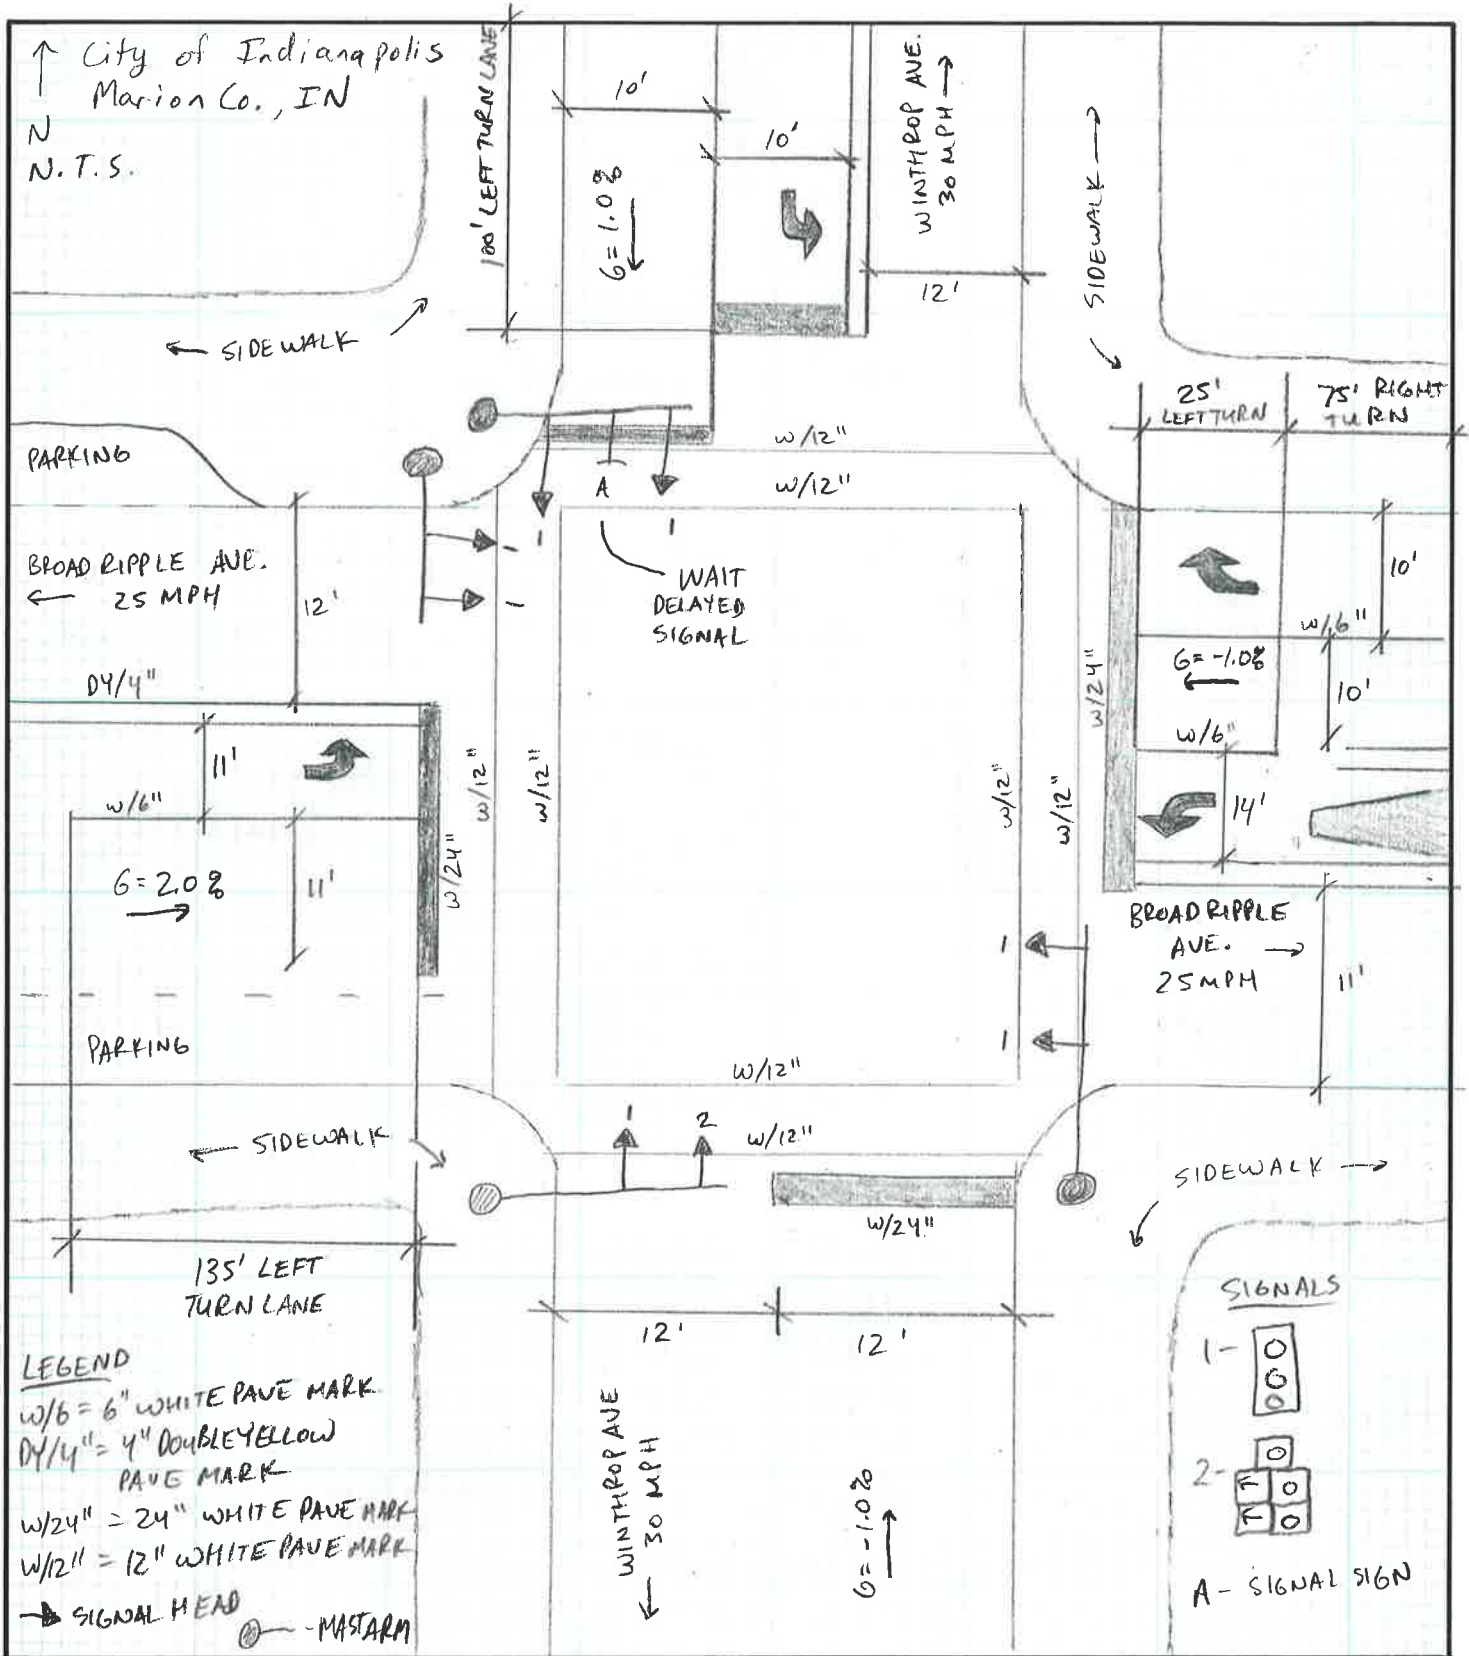 City of Indianapolis
Marion Co., IN
N
N.T.S.
100' LEFT TURN LANE
10'
10'
G = 1.0%
WINTHROP AVE.
30 MPH
12'
SIDEWALK
SIDEWALK
25'
LEFT TURN
75' RIGHT
TURN
PARKING
W/12"
W/12"
A
1
1
WAIT
DELAYED
SIGNAL
1
1
BROAD RIPPLE AVE.
25 MPH
12'
10'
W/6"
G = -1.0%
10'
W/24"
W/6"
14'
DY/4"
11'
W/6"
W/12"
W/12"
W/24"
W/12"
W/12"
G = 2.0%
11'
BROAD RIPPLE
AVE.
25 MPH
11'
1
1
PARKING
W/12"
1
2
W/12"
SIDEWALK
SIDEWALK
W/24"
135' LEFT
TURN LANE
12'
12'
WINTHROP AVE
30 MPH
G = -1.0%
LEGEND
W/6 = 6" WHITE PAVE MARK
DY/4" = 4" DOUBLE YELLOW
PAVE MARK
W/24" = 24" WHITE PAVE MARK
W/12" = 12" WHITE PAVE MARK
SIGNAL HEAD
- MASTARM
SIGNALS
1-
2-
A - SIGNAL SIGN